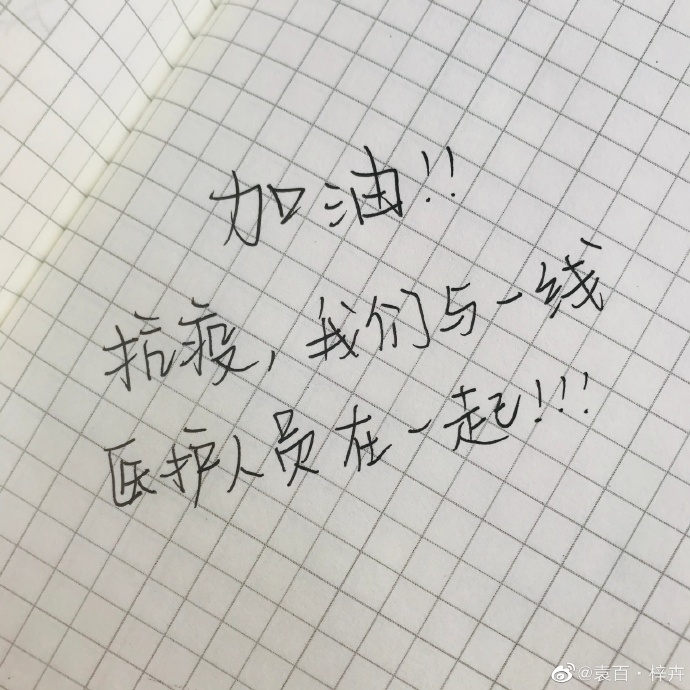 加油!!
抗疫,我们与一线
医护人员在一起!!!
@袁百·梓卉